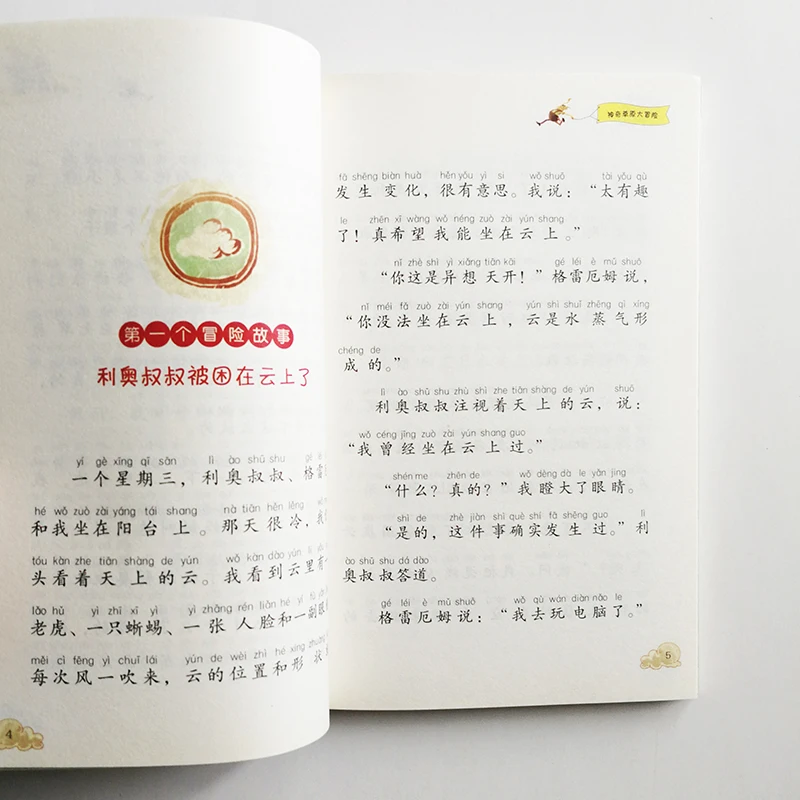 第一个冒险故事
利奥叔叔被困在云上了
yí gè xīng qī sān lì ào shū shu gé
一个星期三，利奥叔叔、格
hé wǒ zuò zài yáng tái shang nà tiān hěn lěng
和我坐在阳台上。那天很冷，我
tóu kàn zhe tiān shàng de yún wǒ kàn dào yún lǐ yǒu
头看着天上的云。我看到云里有一
lǎo hǔ yì zhī xī yì yì zhāng rén liǎn hé yí fù yǎn
老虎、一只蜥蜴、一张人脸和一副眼
měi cì fēng yì chuī lái yún de wèi zhì hé xíng zhuàng
每次风一吹来，云的位置和形状
4
神奇草原大冒险
fā shēng biàn huà hěn yǒu yì si wǒ shuō tài yǒu qù
发生变化，很有意思。我说：“太有趣
le zhēn xī wàng wǒ néng zuò zài yún shang
了！真希望我能坐在云上。”
nǐ zhè shì yì xiǎng tiān kāi gé léi è mǔ shuō
“你这是异想天开！”格雷厄姆说，
nǐ méi fǎ zuò zài yún shang yún shì shuǐ zhēng qì xíng
“你没法坐在云上，云是水蒸气形
chéng de
成的。”
lì ào shū shu zhù shì zhe tiān shàng de yún shuō
利奥叔叔注视着天上的云，说：
wǒ céng jīng zuò zài yún shang guo
“我曾经坐在云上过。”
shén me zhēn de wǒ dèng dà le yǎn jing
“什么？真的？”我瞪大了眼睛。
shì de zhè jiàn shì què shí fā shēng guo lì
“是的，这件事确实发生过。”利
ào shū shu dá dào
奥叔叔答道。
gé léi è mǔ shuō wǒ qù wán diàn nǎo le
格雷厄姆说：“我去玩电脑了。”
5